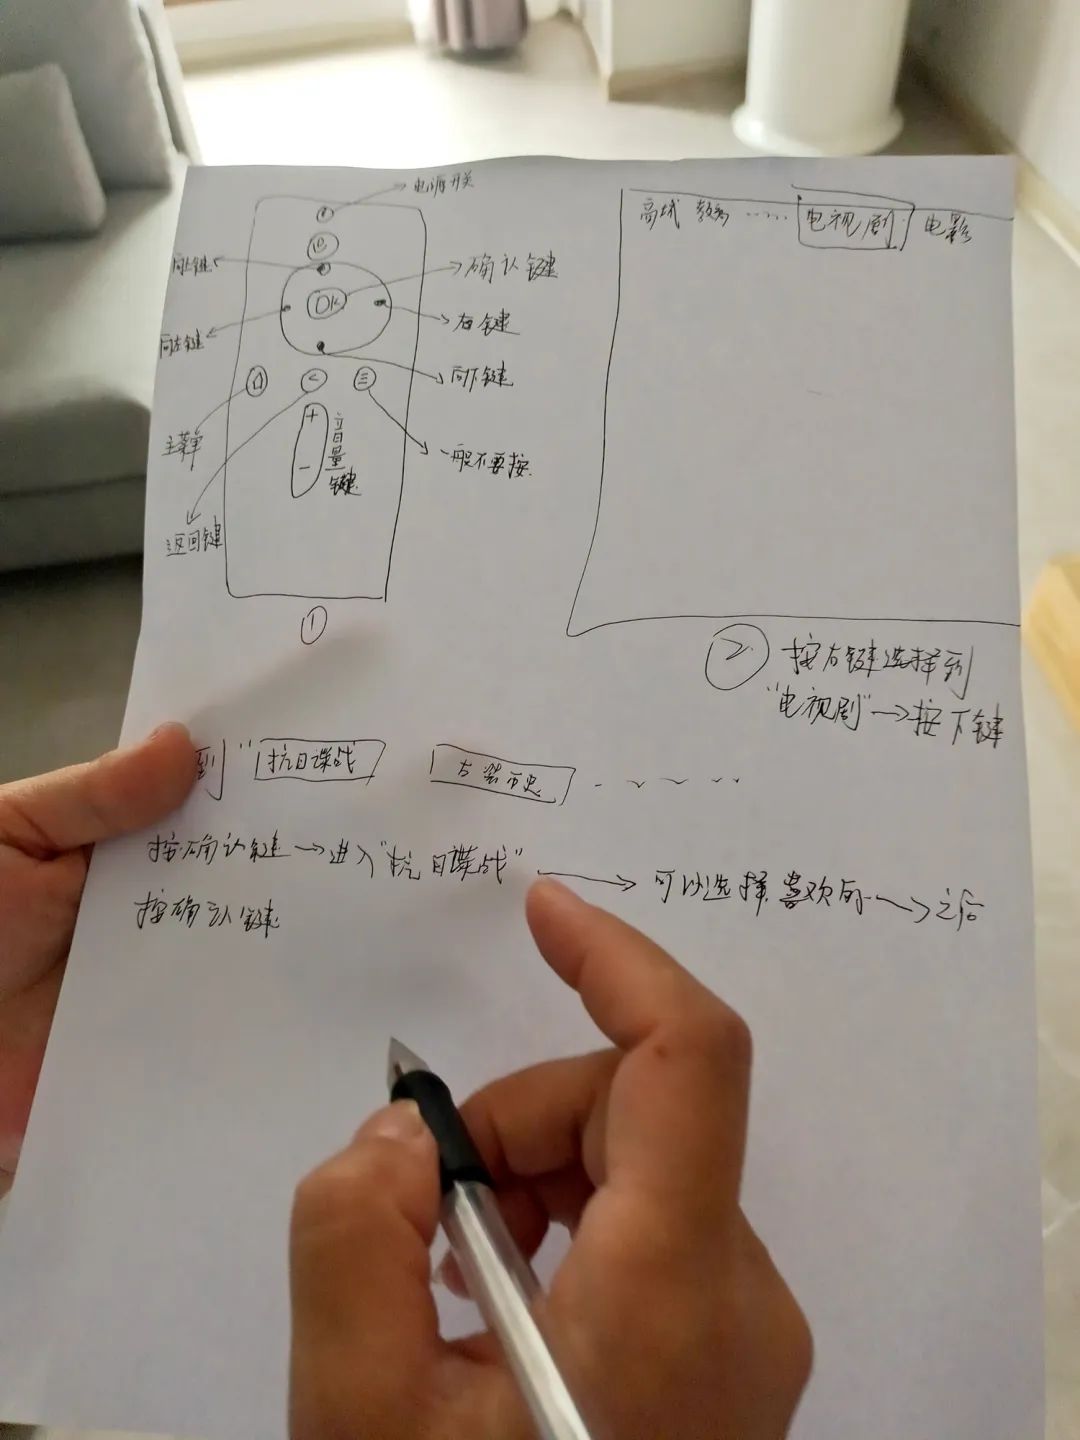 电源开关
向上键
OK
确认键
右键
向左键
向下键
主菜单
返回键
+
音量键
-
一般不要按
①
高城 ...... 电视剧 电影
② 按右键选择到
"电视剧"→按下键
到"抗日谍战 古装历史
按确认键→进入"抗日谍战"→可以选择喜欢的→之后
按确认键